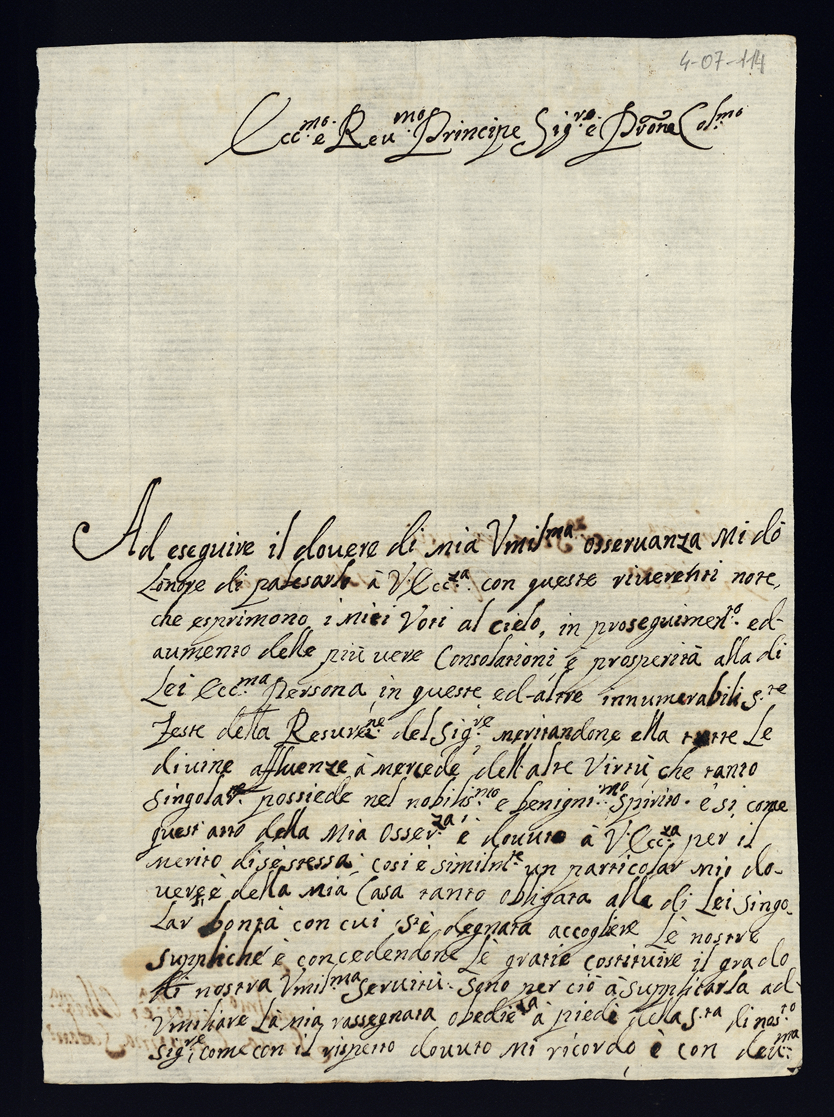 4-07-114
Ecc.mo e Reu.mo Principe Sig.re e Pr̃one Col.mo
Ad eseguire il douere di mia Vmil.ma osseruanza mi dò
Lonore di palesarlo à V. Ecc.za con queste riuerenti note,
che esprimono i miei Voti al cielo, in proseguimen.to ed-
aumento delle più uere Consolationi e prosperità alla di
Lei Ecc.ma Persona in queste ed-altre innumerabili S.te
Feste della Resure.ne del Sig.re meritandone ella tutte Le
diuine affluenze à mercede dell'alte Virtù, che tanto
singolar.te possiede nel nobilis.mo e benigni.mo spirito. e si come
quest'atto della mia osser.za è douuto à V. Ecc.za per il
merito di se stessa; cosi è similm.te un particolar mio do-
uere è della mia Casa tanto obligata alla di Lei singo-
Lar bontà con cui s'è degnata accogliere Le nostre
suppliche è concedendone Le gratie costituire il grado
di nostra Vmil.ma seruitù. Sono per ciò à supplicarla ad-
Vmiliare La mia rassegnata obedie.za à piedi della S.tà di nos.to
Sig.re, come con il rispetto douuto mi ricordo, è con deu.ma